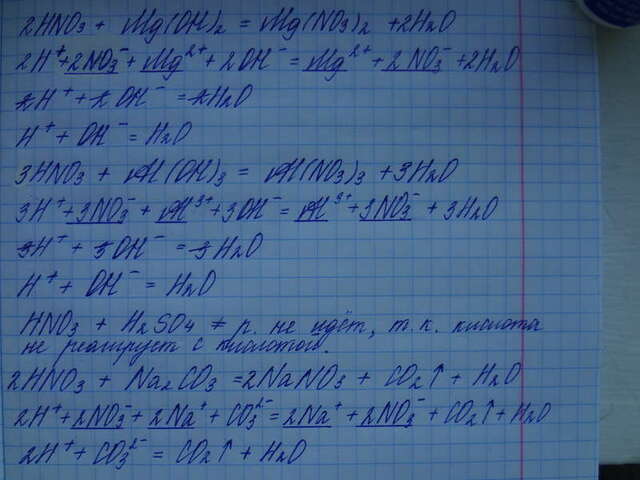 2HNO₃ + Mg(OH)₂ = Mg(NO₃)₂ + 2H₂O
2H⁺ + 2NO₃⁻ + Mg²⁺ + 2OH⁻ = Mg²⁺ + 2NO₃⁻ + 2H₂O
2H⁺ + 2OH⁻ = 2H₂O
H⁺ + OH⁻ = H₂O
3HNO₃ + Al(OH)₃ = Al(NO₃)₃ + 3H₂O
3H⁺ + 3NO₃⁻ + Al³⁺ + 3OH⁻ = Al³⁺ + 3NO₃⁻ + 3H₂O
3H⁺ + 3OH⁻ = 3H₂O
H⁺ + OH⁻ = H₂O
HNO₃ + H₂SO₄ ≠ р. не идёт, т.к. кислота
не реагирует с кислотой.
2HNO₃ + Na₂CO₃ = 2NaNO₃ + CO₂↑ + H₂O
2H⁺ + 2NO₃⁻ + 2Na⁺ + CO₃²⁻ = 2Na⁺ + 2NO₃⁻ + CO₂↑ + H₂O
2H⁺ + CO₃²⁻ = CO₂↑ + H₂O